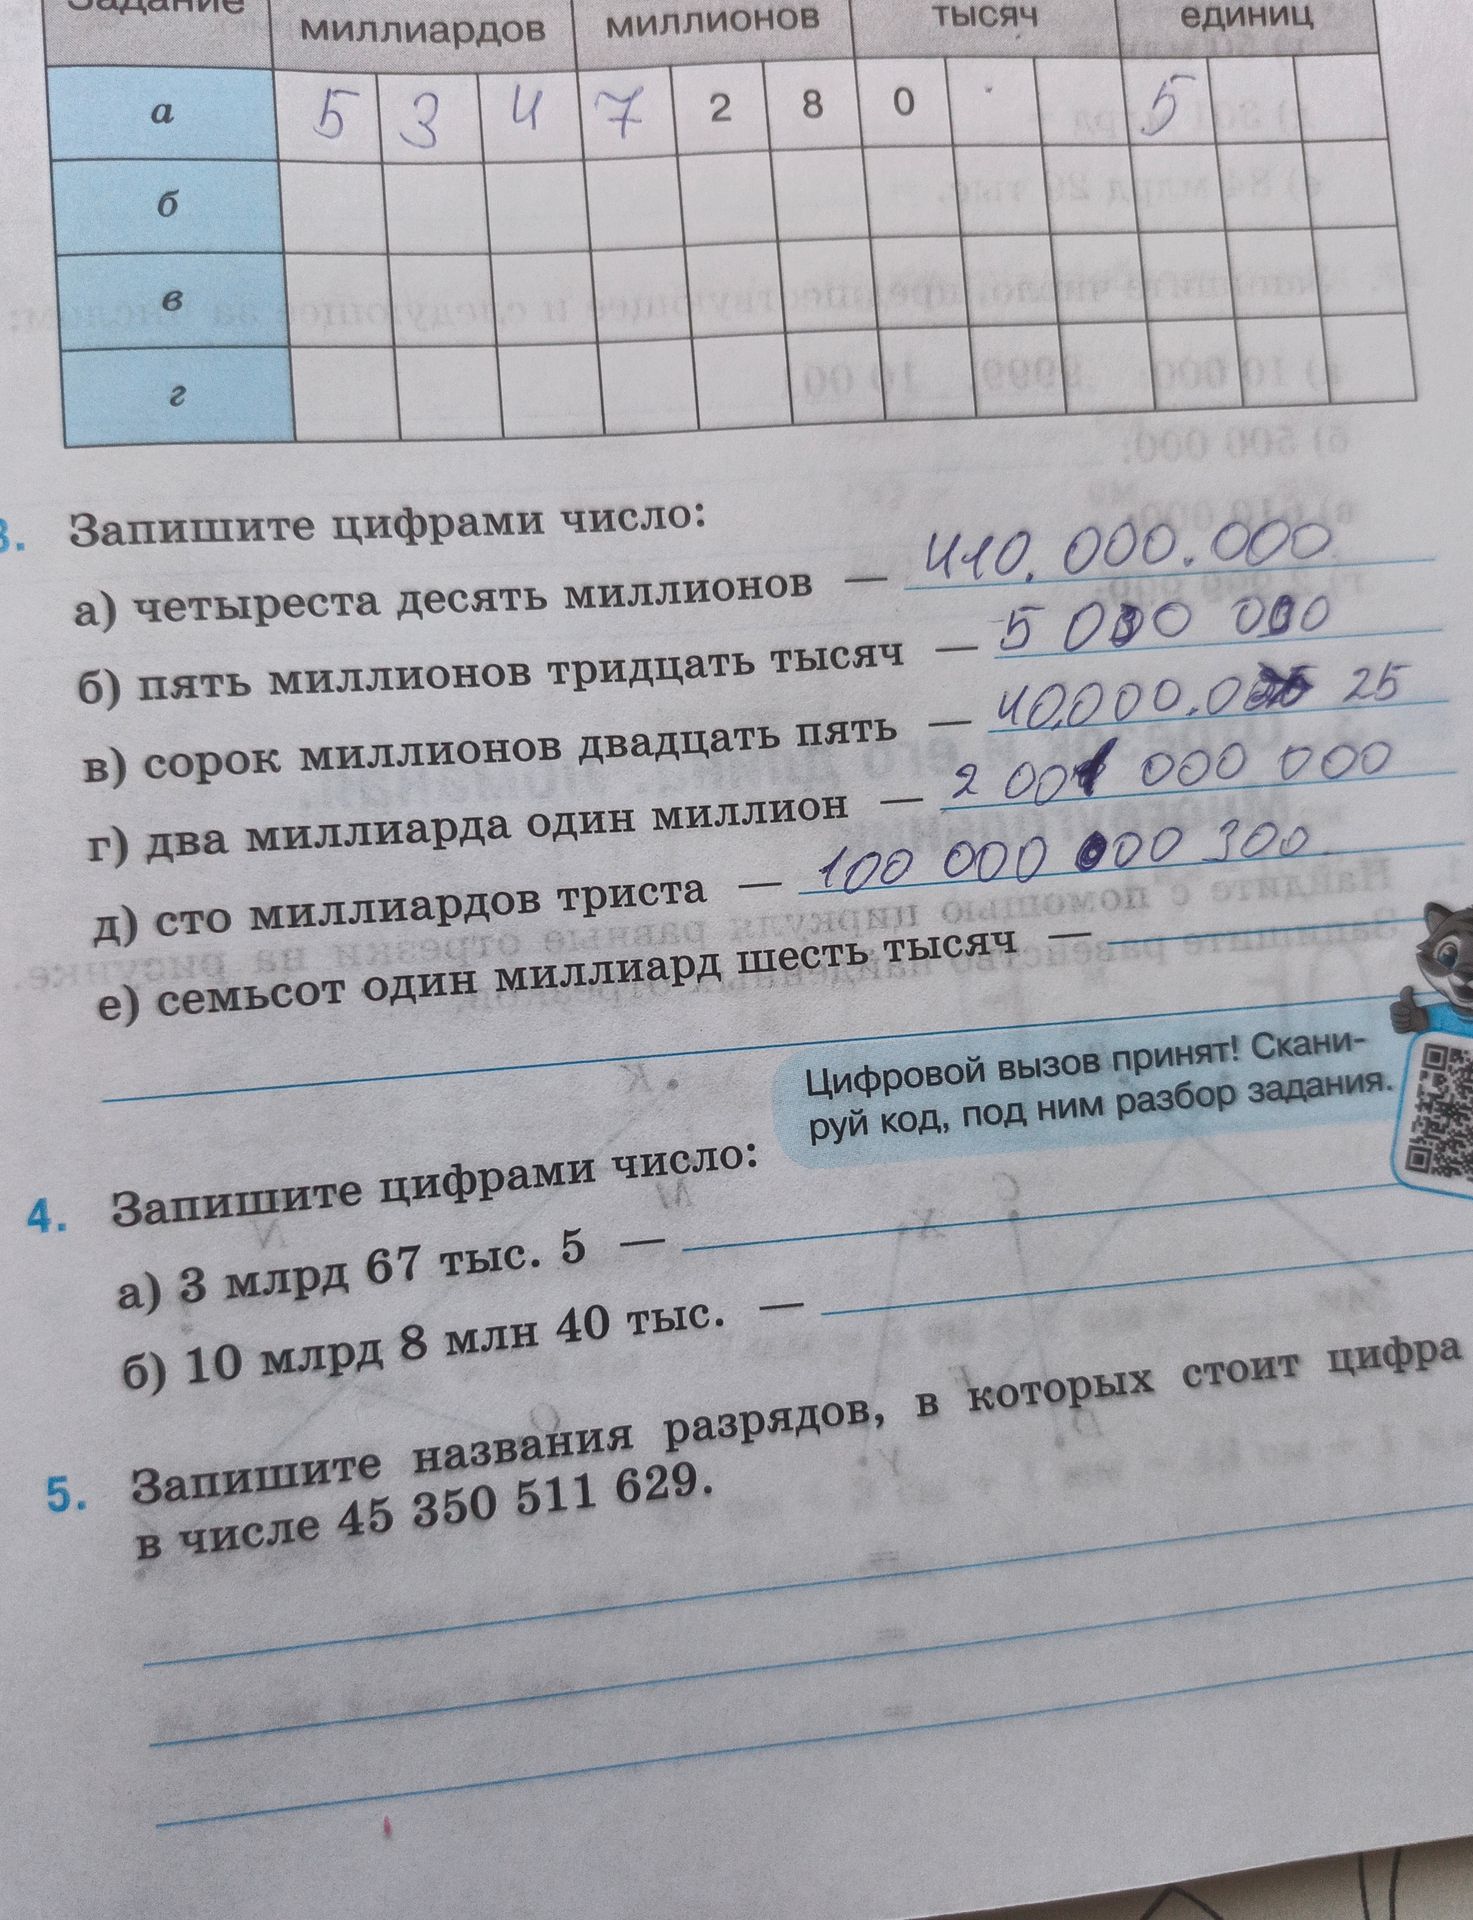 Задание миллиардов миллионов тысяч единиц
а 5 3 4 7 2 8 0 5
б
в
г
3. Запишите цифрами число:
а) четыреста десять миллионов — 410.000.000
б) пять миллионов тридцать тысяч — 5 030 000
в) сорок миллионов двадцать пять — 40.000.0 25
г) два миллиарда один миллион — 2 001 000 000
д) сто миллиардов триста — 100 000 000 300
е) семьсот один миллиард шесть тысяч —
Цифровой вызов принят! Скани-
руй код, под ним разбор задания.
4. Запишите цифрами число:
а) 3 млрд 67 тыс. 5 —
б) 10 млрд 8 млн 40 тыс. —
5. Запишите названия разрядов, в которых стоит цифра
в числе 45 350 511 629.